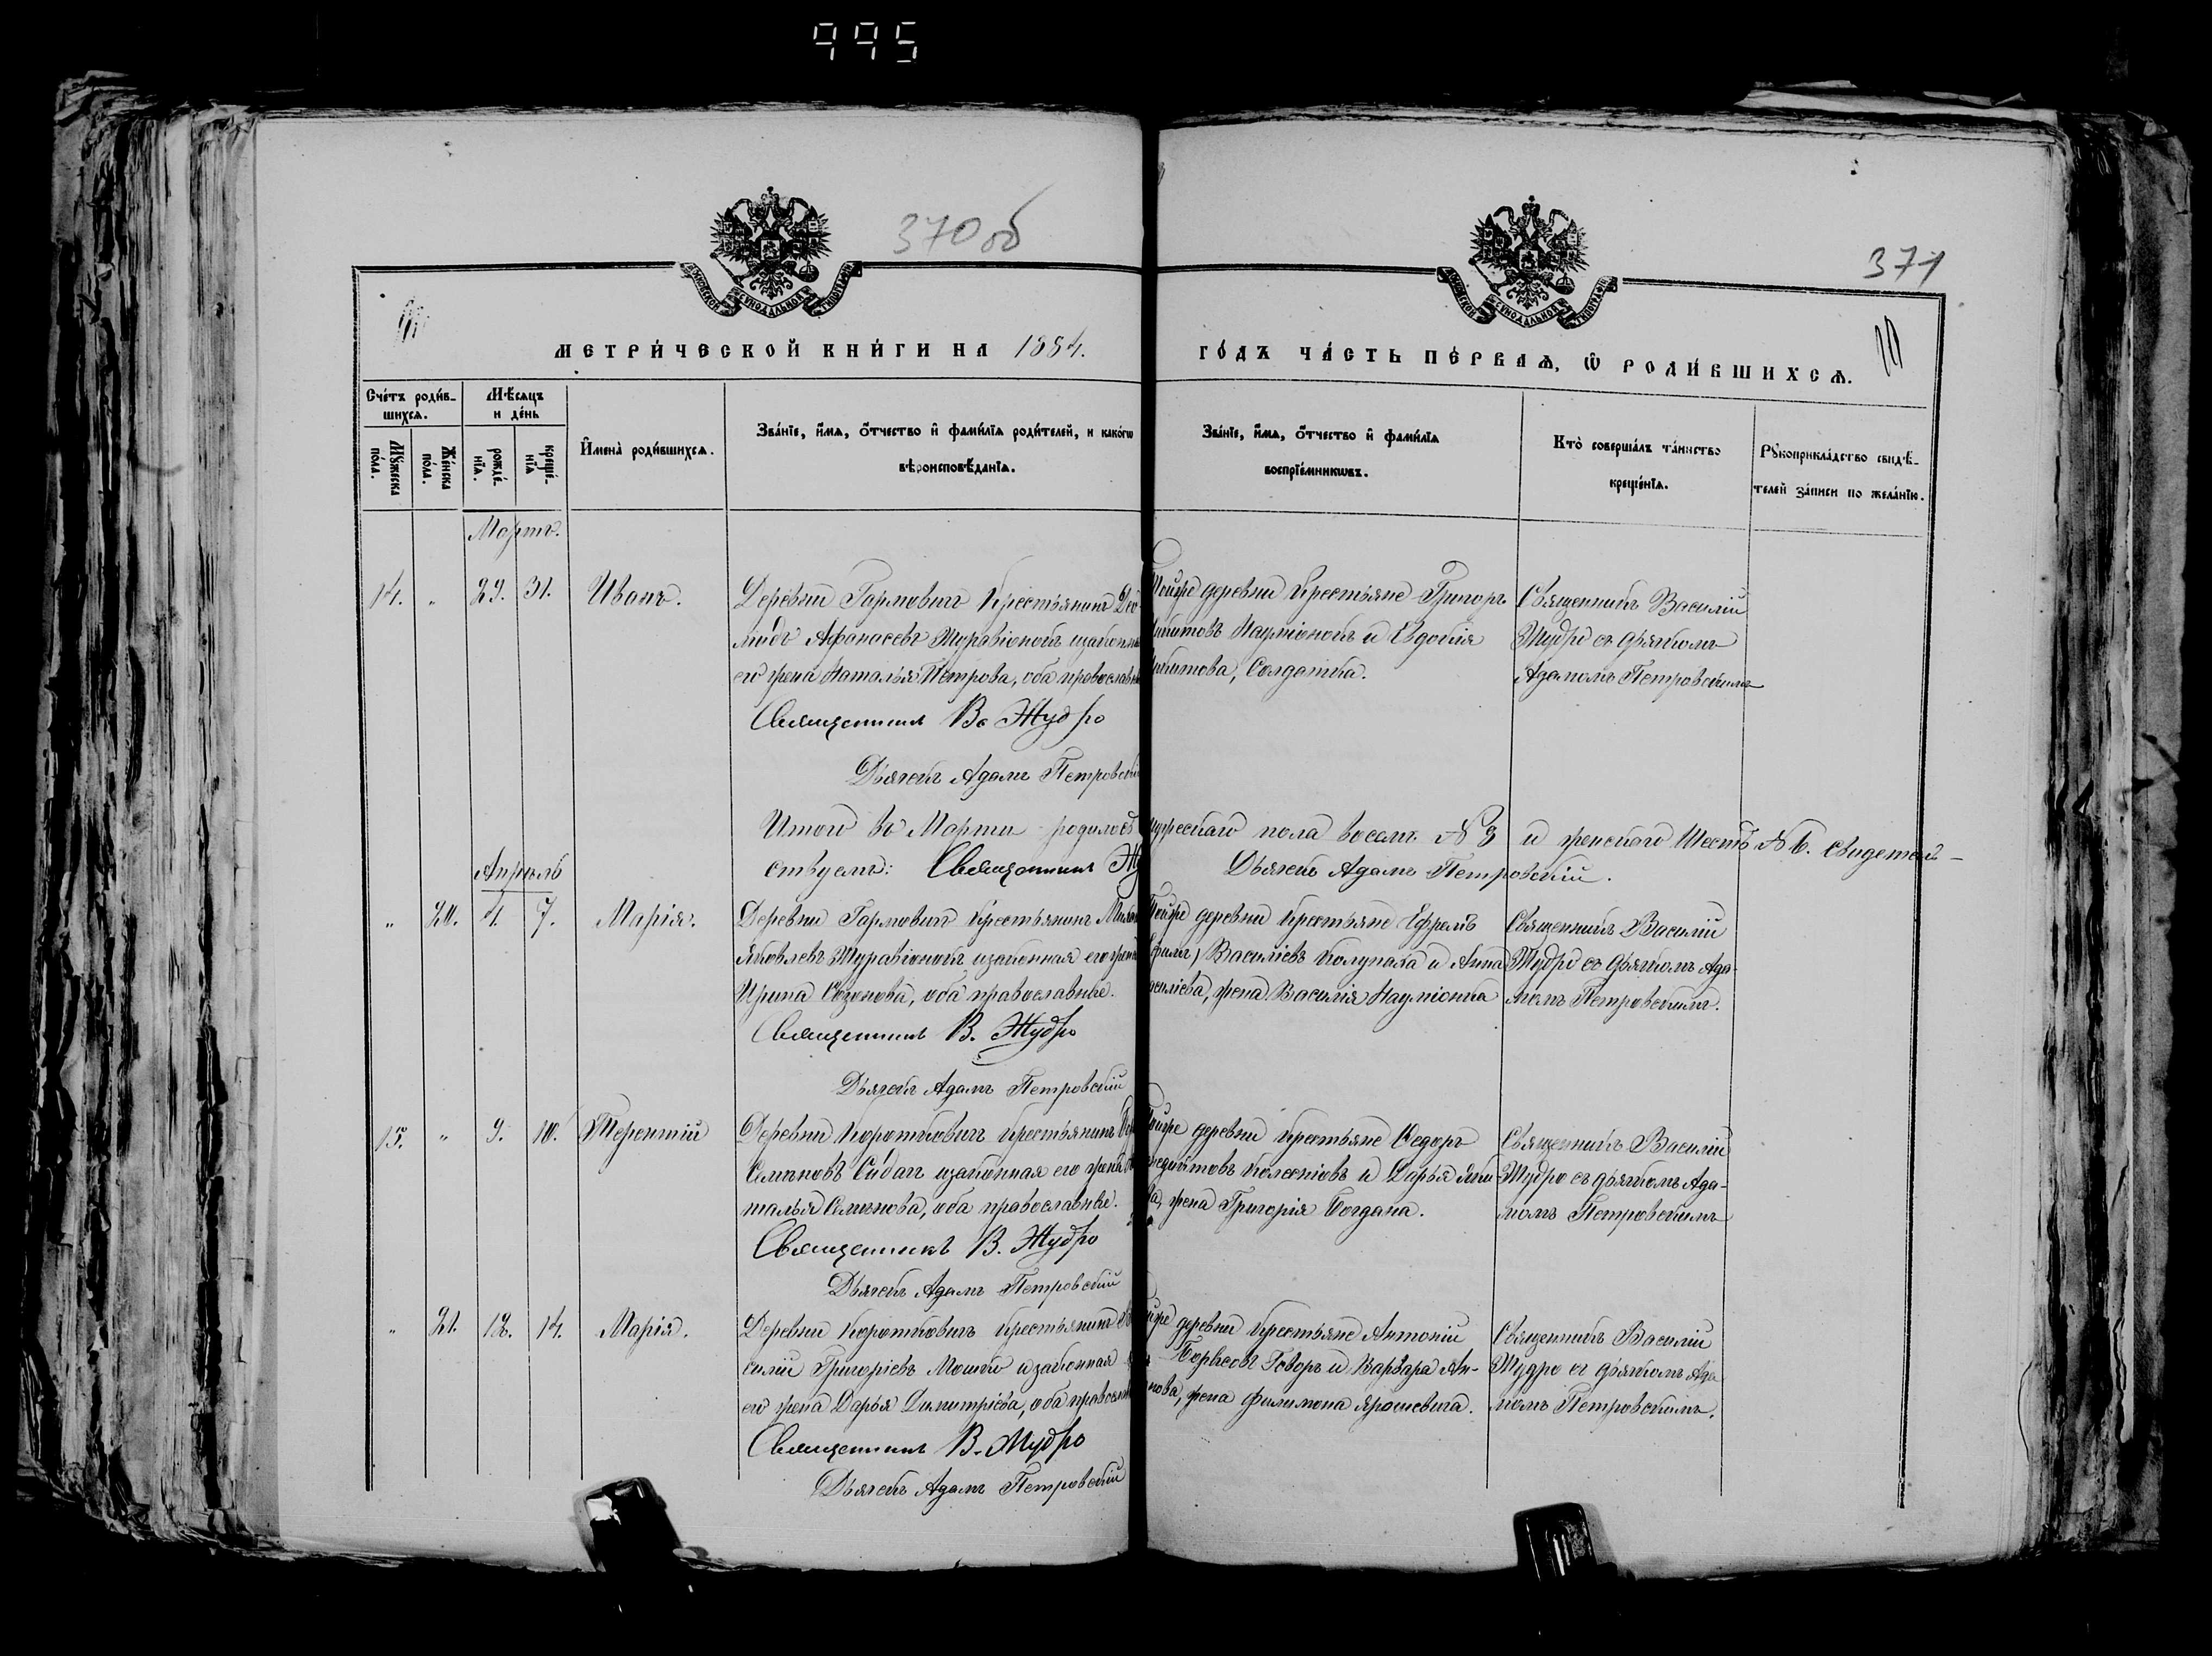 995
370 об
371
МЕТРИ́ЧЕСКОЙ КНИ́ГИ НА 1884. ГО́ДЪ ЧА́СТЬ ПЕ́РВАѦ, Ѡ РОДИ́ВШИХСѦ.
Сче́тъ роди́в-
шихсѧ.
Мꙋжеска по́ла.
Же́нска по́ла.
Мѣ́сѧцъ
и де́нь
рожде́-
нїѧ.
креще́-
нїѧ
Имена̀ роди́вшихсѧ.
Зва́нїе, и́мѧ, о́тчество и фами́лїѧ роди́телей, и како́гѡ
вѣроисповѣ́данїѧ.
Зва́нїе, и́мѧ, о́тчество и фами́лїѧ
воспрїе́мникѡвъ.
Кто̀ соверша́лъ та́инство
креще́нїѧ.
Рꙋкоприкла́дство свидѣ́-
телей за́писи по жела́нїю.
Мартъ.
14. „ 29. 31. Иванъ.
Деревни Гармовичъ крестьянинъ
Афанасевъ Журавіонокъ и законная
его жена Наталья Петрова, оба православные
Священникъ В. Жудро
Дьячекъ Адамъ Петровскій
Тойже деревни крестьяне Григоръ
Наумѣонокъ и Евдокія
Никитова, Солдатка.
Священникъ Василій
Жудро съ дьячкомъ
Адамомъ Петровскимъ
Итого въ Марти родилось мужескаго пола восемъ № 8 и женскаго Шесть № 6. свидетель-
ствуемъ: Священникъ Дьячекъ Адамъ Петровскій.
Апрѣль
„ 20. 4. 7. Марія.
Деревни Гармовичъ крестьянинъ
Яковлевъ Журавіонокъ и законная его жена
Ирина Созонова, оба православные.
Священникъ В. Жудро
Дьячекъ Адамъ Петровскій
Тойже деревни крестьяне Ефремъ
Василіевъ Колупаха и Анна
жена Василія Науміонка
Священникъ Василій
Жудро со дьячкомъ Ада-
момъ Петровскимъ.
15. „ 9. 10. Терентій
Деревни Коротковичъ крестьянинъ
Семеновъ и законная его жена
талья Семенова, оба православные.
Священникъ В. Жудро
Дьячекъ Адамъ Петровскій
Тойже деревни крестьяне Федоръ
и Дарья
жена Григорія Богдана.
Священникъ Василій
Жудро съ дьячкомъ Ада-
момъ Петровскимъ
„ 21. 12. 14. Марія.
Деревни Коротковичъ крестьянинъ Ва-
силій Григоріевъ Мошко и законная
его жена Дарья Димитріева, оба православные
Священникъ В. Жудро
Дьячекъ Адамъ Петровскій
Тойже деревни крестьяне Антоній
Говоръ и Варвара Ан-
жена Филимона Ярошевича.
Священникъ Василій
Жудро съ дьячкомъ Ада
момъ Петровскимъ.